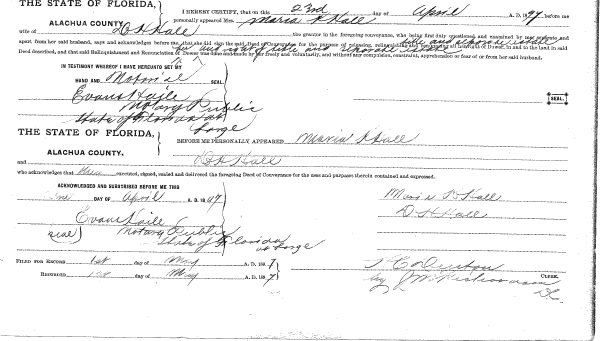 THE STATE OF FLORIDA,
ALACHUA COUNTY.
I HEREBY CERTIFY, that on this 23rd day of April A. D. 1897 before me
personally appeared Mrs. Maria R Hall
wife of D H Hall the grantor in the foregoing conveyance, who being first duly questioned and examined by me separate and
apart from her said husband, says and acknowledges before me, that she did sign the said Deed of Conveyance for the purpose of
Deed described, and that said Relinquishment and Renunciation of Dower was done and made freely and voluntarily, and without any compulsion, constraint, apprehension or fear of or from her said husband.
IN TESTIMONY WHEREOF I HAVE HEREUNTO SET MY
HAND AND Notarial SEAL.
Evans Haile
Notary Public
State of Florida at
Large
SEAL
THE STATE OF FLORIDA,
ALACHUA COUNTY.
BEFORE ME PERSONALLY APPEARED Maria R Hall
and D H Hall
who acknowledges that executed, signed, sealed and delivered the foregoing Deed of Conveyance for the uses and purposes therein contained and expressed.
ACKNOWLEDGED AND SUBSCRIBED BEFORE ME THIS
DAY OF April A. D. 1897
Evans Haile
(Seal) Notary Public
State of Florida
at Large
Maria R Hall
D H Hall
FILED FOR RECORD 1st day of May A. D. 1897
RECORDED 1st day of May A. D. 1897
CLERK.
by J W
D.C.